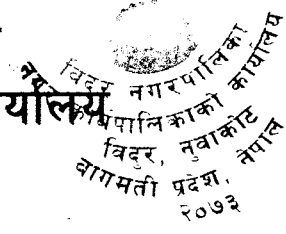 र्यालय
विदुर नगरपालिका
नगर कार्यपालिकाको कार्यालय
विदुर, नुवाकोट
बागमती प्रदेश, नेपाल
२०७३